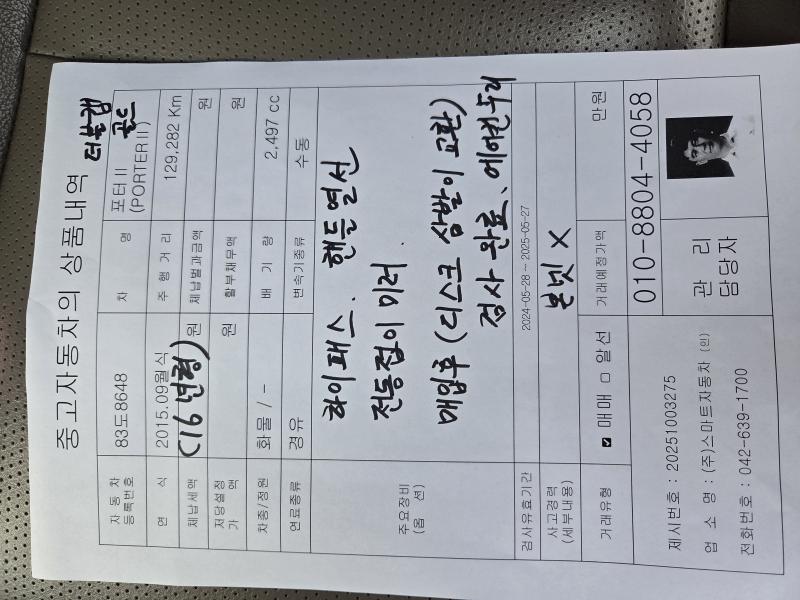 중고자동차의 상품내역
더블캡
골드
자동차
등록번호
83도8648
차 명
포터 II
(PORTER II)
연 식
2015.09월식
(16년형)
주 행 거 리
129,282 Km
체납세액
원
체납벌과금액
원
저당설정
가 액
원
할부채무액
원
차종/정원
화물 / -
배 기 량
2,497 cc
연료종류
경유
변속기종류
수동
주요장비
(옵 션)
하이패스. 핸들열선
전동접이 미러.
매입후 (디스크 삼발이 교환)
검사 완료, 에어컨 수리
검사유효기간
2024-05-28 ~ 2025-05-27
사고경력
(세부내용)
본넷 X
거래유형
☑ 매매 □ 알선
거래예정가액
만원
제시번호 : 20251003275
업 소 명 : (주)스마트자동차 (인)
전화번호 : 042-639-1700
관 리
담당자
010-8804-4058